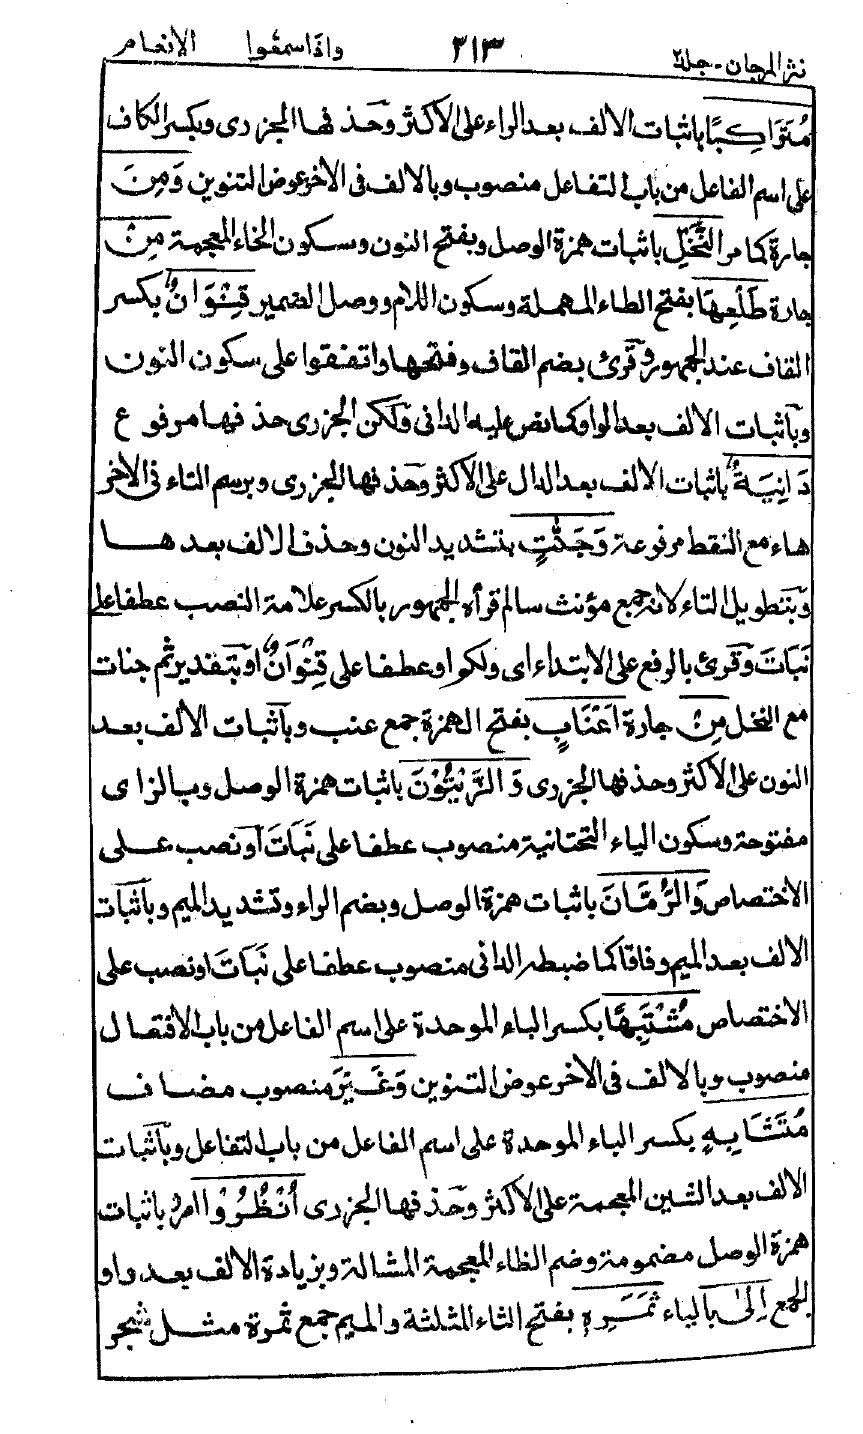 نثر المرجان - جلد ٢ ٢١٣ واذا سمعوا الانعام
مُتَرَاكِبًا باثبات الالف بعد الراء على الاكثر وحذفها الجزرى وبكسر الكاف
على اسم الفاعل من باب التفاعل منصوب وبالالف فى الاخر عوض التنوين وَمِنَ
جارة كما مر النَّخْلِ باثبات همزة الوصل وبفتح النون وسكون الخاء المعجمة مِنْ
جارة طَلْعِهَا بفتح الطاء المهملة وسكون اللام ووصل الضمير قِنْوَانٌ بكسر
القاف عند الجمهور وقرئ بضم القاف وفتحها واتفقوا على سكون النون
وباثبات الالف بعد الواو كما نص عليه الدانى ولكن الجزرى حذفها مرفوع
دَانِيَةٌ باثبات الالف بعد الدال على الاكثر وحذفها الجزرى وبرسم التاء فى الاخر
هاء مع النقط مرفوعة وَجَنّٰتٍ بتشديد النون وحذف الالف بعدها
وبتطويل التاء لانه جمع مؤنث سالم قرأه الجمهور بالكسر علامة النصب عطفا على
نَبَاتَ وقرئ بالرفع على الابتداء اى ولكم او عطفا على قِنْوَانٌ او بتقدير ثم جنات
مع النخل مِنْ جارة اَعْنَابٍ بفتح الهمزة جمع عنب وباثبات الالف بعد
النون على الاكثر وحذفها الجزرى وَالزَّيْتُوْنَ باثبات همزة الوصل وبالزاى
مفتوحة وسكون الياء التحتانية منصوب عطفا على نَبَاتَ او نصب على
الاختصاص وَالرُّمَّانَ باثبات همزة الوصل وبضم الراء وتشديد الميم وباثبات
الالف بعد الميم وفاقا كما ضبطه الدانى منصوب عطفا على نَبَاتَ او نصب على
الاختصاص مُشْتَبِهًا بكسر الباء الموحدة على اسم الفاعل من باب الافتعال
منصوب وبالالف فى الاخر عوض التنوين وَغَيْرَ منصوب مضاف
مُتَشَابِهٍ بكسر الباء الموحدة على اسم الفاعل من باب التفاعل وباثبات
الالف بعد الشين المعجمة على الاكثر وحذفها الجزرى اُنْظُرُوْا امر باثبات
همزة الوصل مضمومة وضم الظاء المعجمة المشالة وبزيادة الالف بعد واو
الجمع اِلٰى بالياء ثَمَرِهٖ بفتح الثاء المثلثة والميم جمع ثمرة مثل شجر